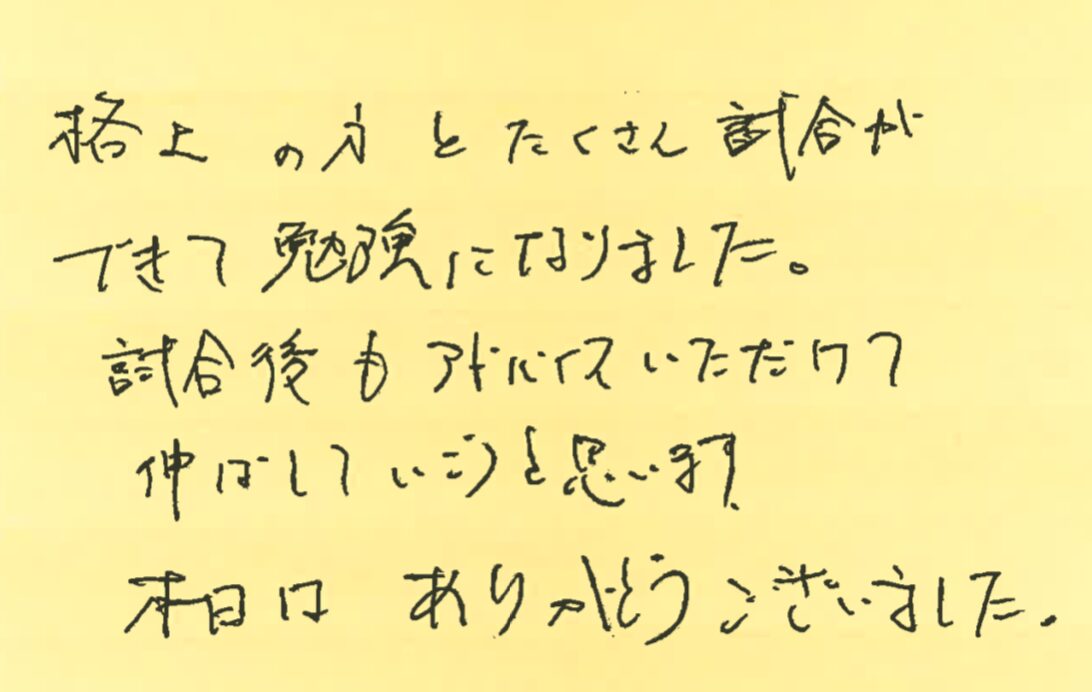 格上の方とたくさん試合が
できて勉強になりました。
試合後もアドバイスいただけて
伸ばしていこうと思います
本日はありがとうございました.